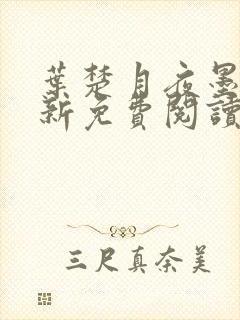 葉楚月夜墨
新免費閱讀
三尺真奈美